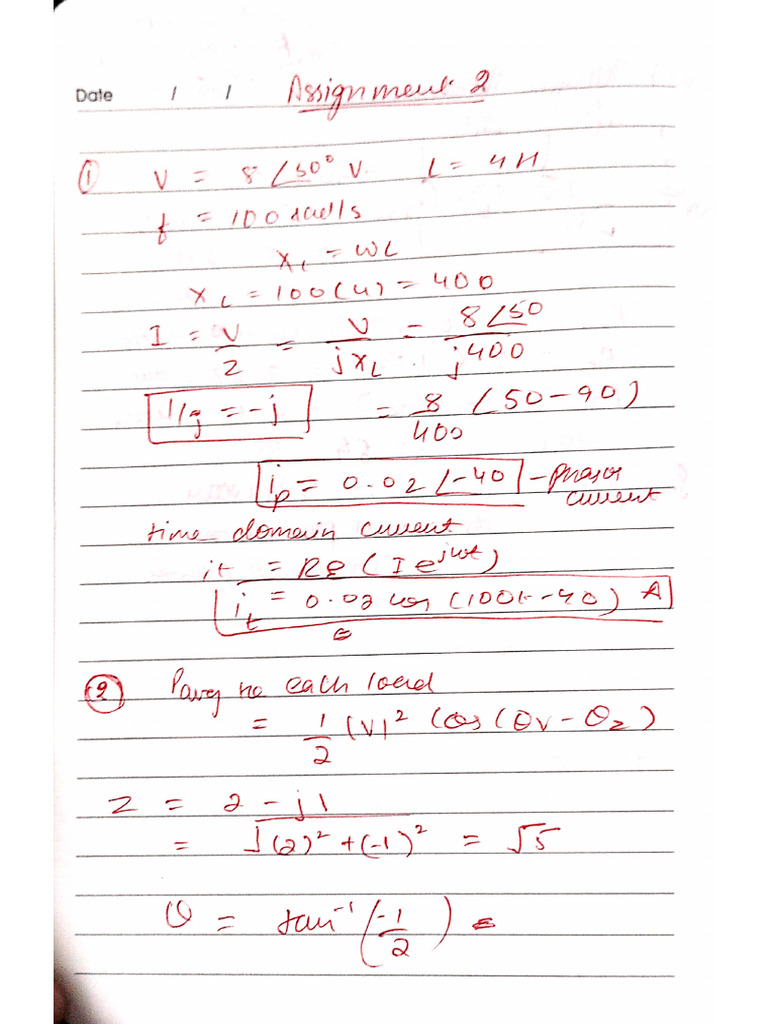 Date / / Assignment 2
① V = 8 ∠50° V. L = 4H
f = 100 rad/s
X_L = ωL
X_L = 100(4) = 400
I = V/Z = V/jX_L = 8∠50/j400
1/j = -j = 8/400 ∠50-90)
i_p = 0.02 ∠-40 - phasor current
time domain current
it = Re (I e^jωt)
i_t = 0.02 cos (100t-40) A
② Pavg to each load
= 1/2 |V|² Cos (θv - θz)
Z = 2 - j1
= √(2)² + (-1)² = √5
θ = tan⁻¹ (-1/2) =